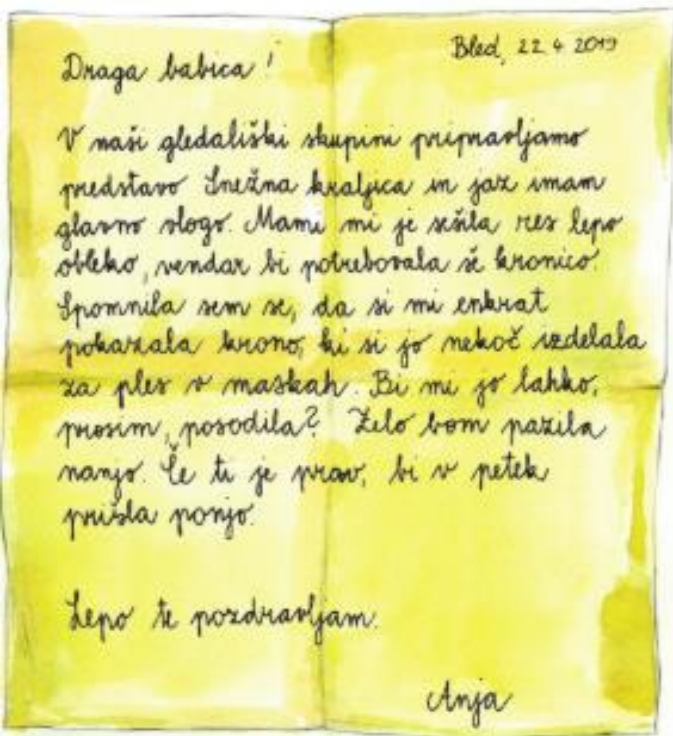 Bled, 22 4 2019
Draga babica!
V naši gledališki skupini pripravljamo
predstavo Snežna kraljica in jaz imam
glavno vlogo. Mami mi je sešila res lepo
obleko, vendar bi potrebovala še kronico.
Spomnila sem se, da si mi enkrat
pokazala krono, ki si jo nekoč izdelala
za ples v maskah. Bi mi jo lahko,
prosim, posodila? Zelo bom pazila
nanjo. Če ti je prav, bi v petek
prišla ponjo.
Lepo te pozdravljam.
Anja